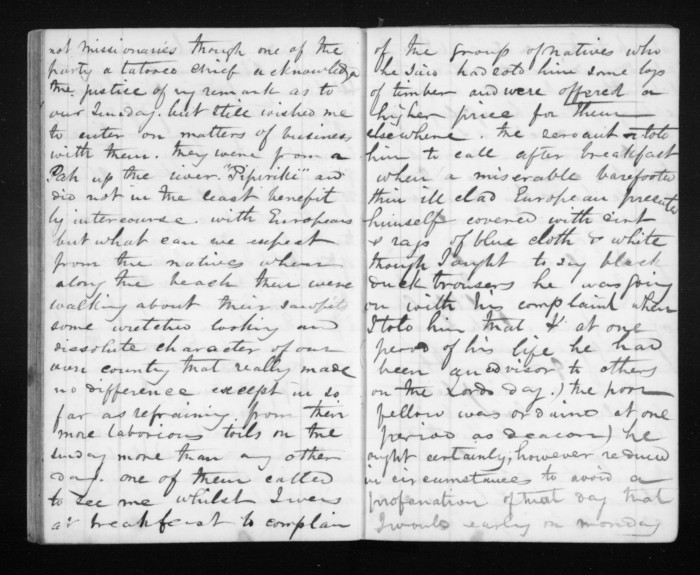 not missionaries though one of the
party a tatooed chief acknowledged
the justice of my remark as to
our Sunday. but still wished me
to enter on matters of business
with them. they were from a
Pah up the river. "Pipiriki" and
did not in the least benefit
by intercourse. with Europeans
but what can we expect
from the natives when
along the beach there were
walking about their
some wretched looking and
dissolute character of our
own country that really made
no difference except in so
far as refraining from their
more laborious toils on the
Sunday more than any other
day. one of them called
to see me whilst I was
at breakfast to complain
of the group of natives who
he said had sold him some logs
of timber and were offered a
higher price for them
elsewhere. the servant told
him to call after breakfast
when a miserable barefooted
thin ill clad European presented
himself covered with dirt
& rags of blue cloth & white
though I ought to say black
duck trousers he was going
on with his complaint when
I told him that at one
period of his life he had
been an advisor to others
on the Lords day.) the poor
fellow was ordained at one
period as deacon) he
ought certainly, however reduced
in circumstances to avoid a
profanation of that day that
I would early on monday